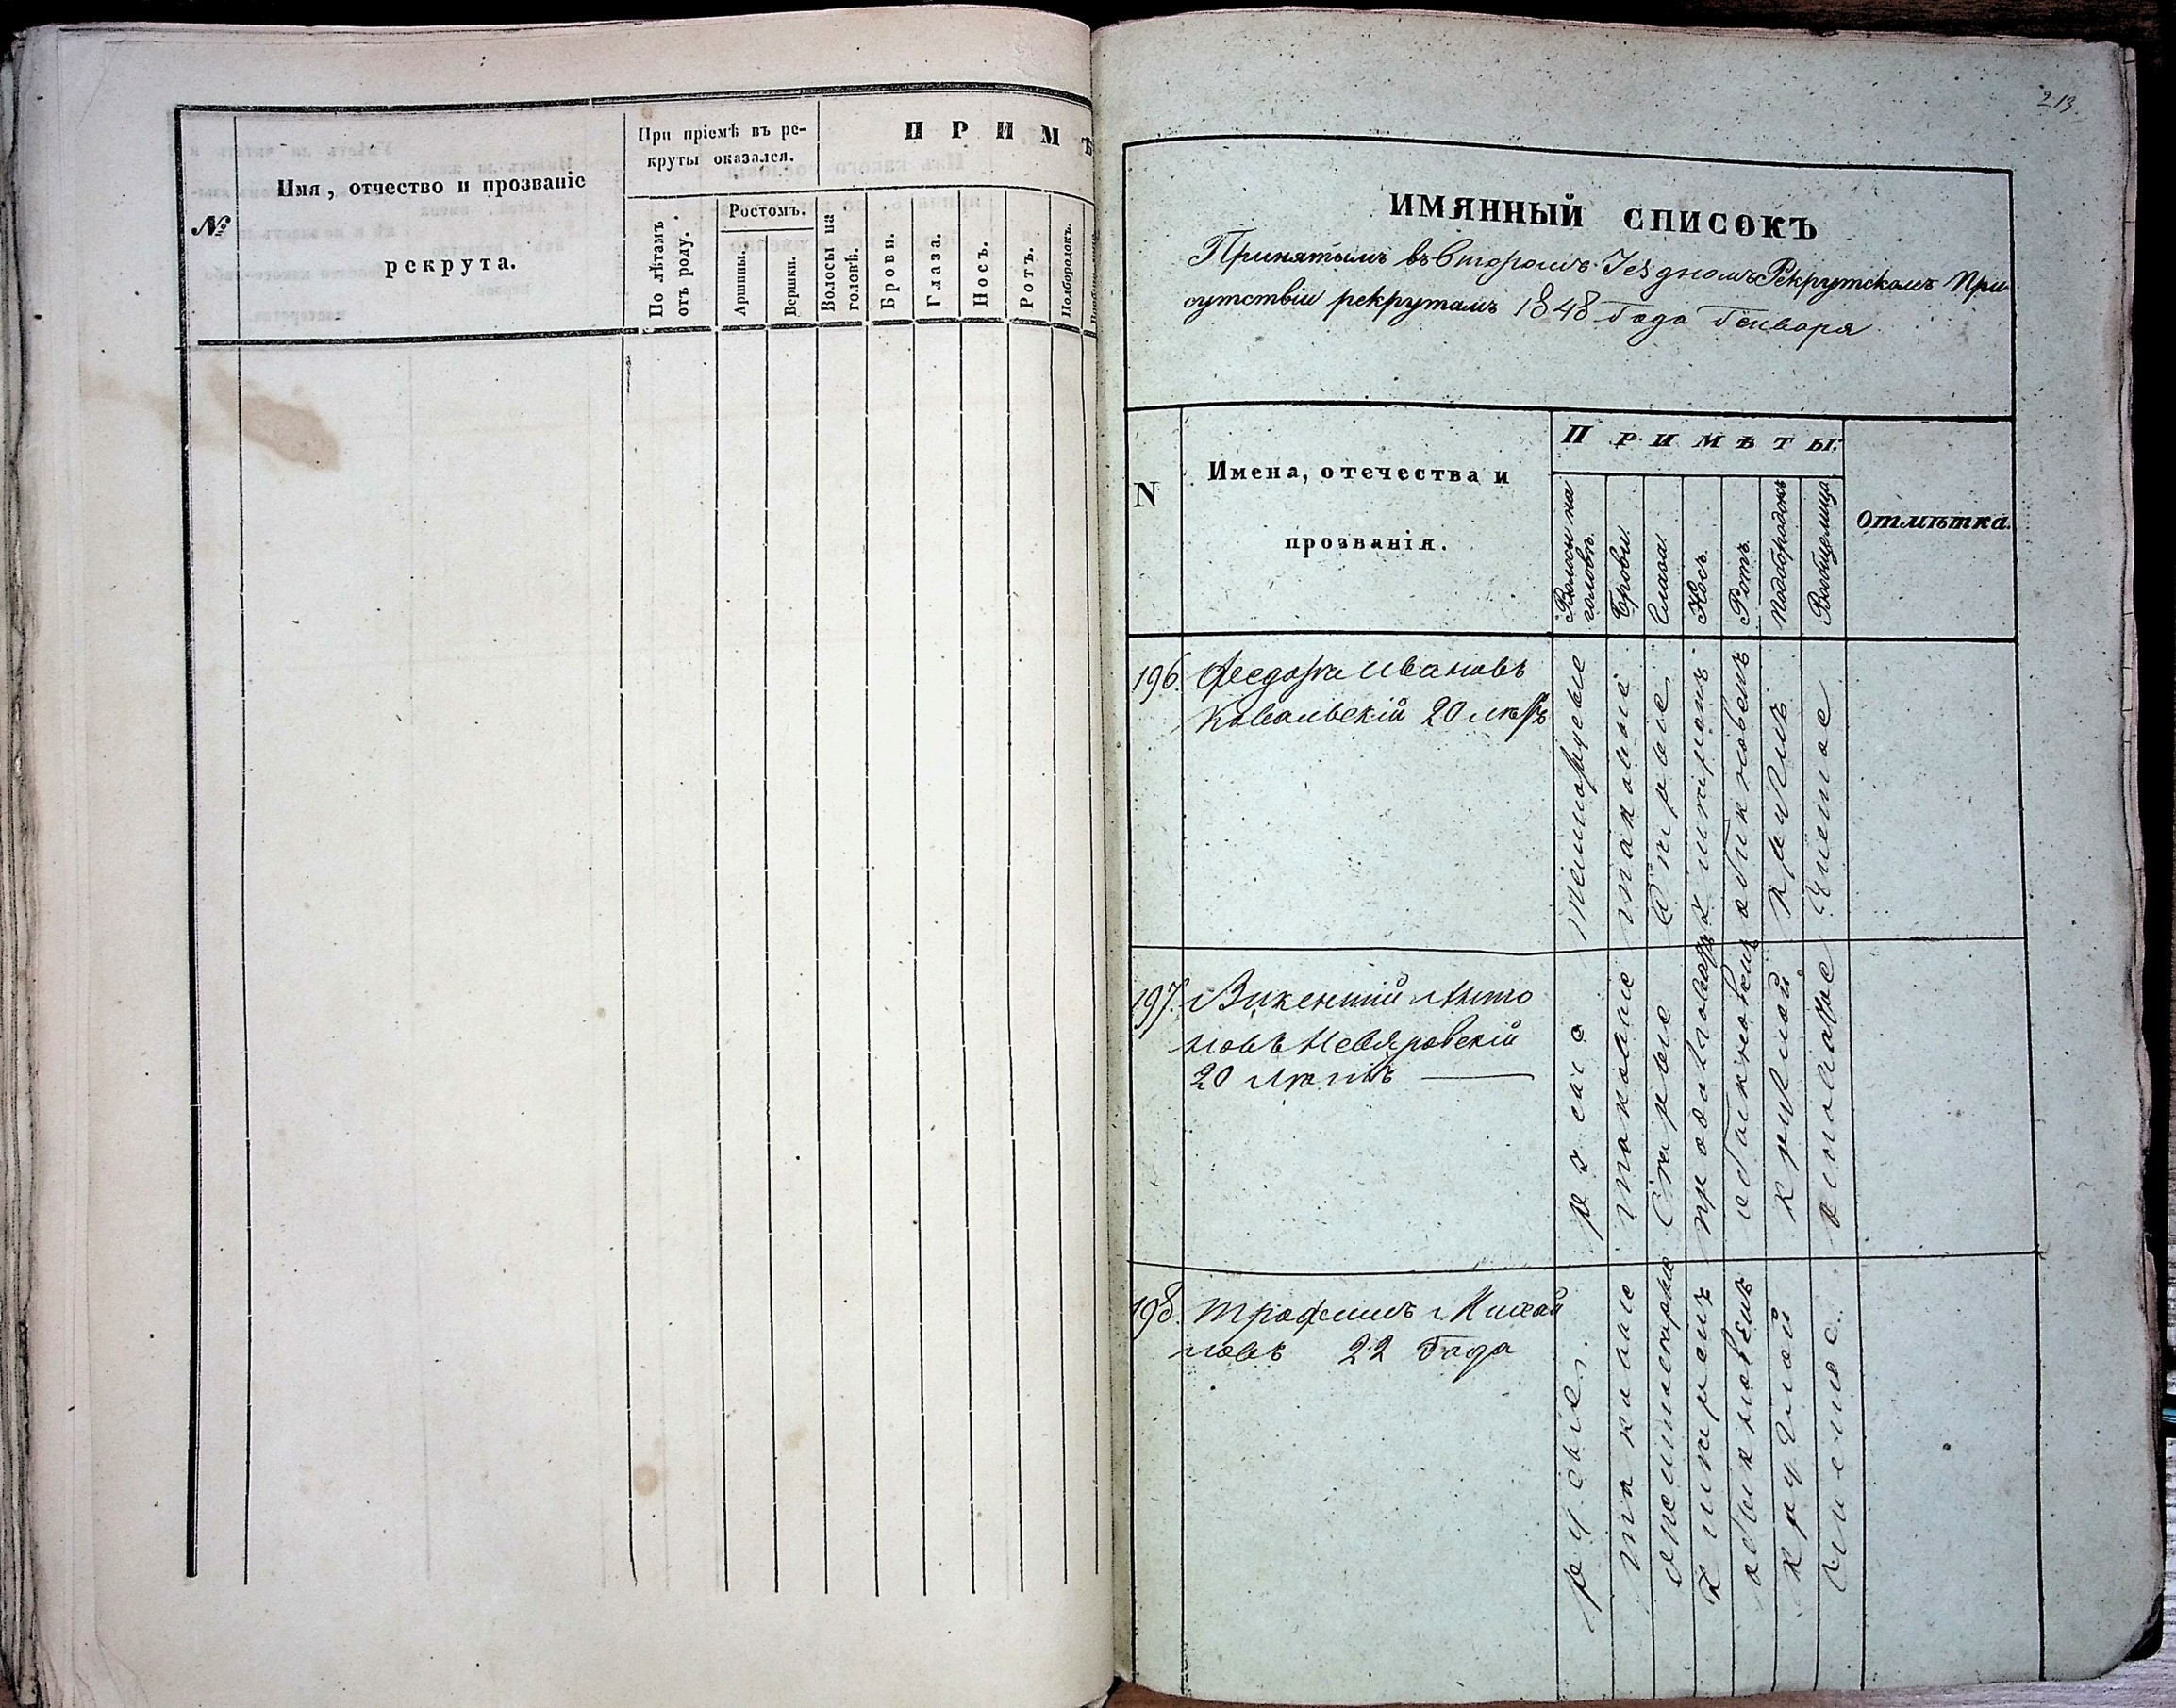 №
Имя, отчество и прозваніе
рекрута.
При пріемѣ въ ре-
круты оказался.
По лѣтамъ
отъ роду.
Ростомъ.
Аршины.
Вершки.
ПРИМѢ
Волосы на
головѣ.
Брови.
Глаза.
Носъ.
Ротъ.
Подбородокъ.
213
ИМЯННЫЙ СПИСОКЪ
Принятымъ въ Второмъ Уѣздномъ Рекрутскомъ При
сутствіи рекрутамъ 1848 Года Генваря
N
Имена, отечества и
прозванія.
ПРИМѢТЫ:
Волосы на
головѣ.
Брови.
Глаза.
Носъ.
Ротъ.
Подбородокъ
Вообще лица
Отмѣтка.
196. Ѳедоръ Ивановъ
Ковальскій 20 лѣтъ
темнорусые
такаліе
Сѣрые
обикновенъ
Чистое
197. Викентій Анто
новъ Невяровскій
20 лѣтъ
такаліе
Сѣрые
продолговатъ
обикновенъ
круглой
198. Трофимъ Михай
ловъ 22 Года
русые.
такаліе
обикновенъ
круглой
чистое